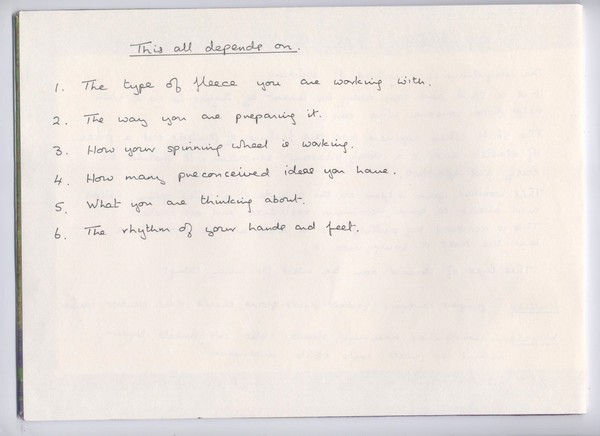 This all depends on.
1. The type of fleece you are working with.
2. The way you are preparing it.
3. How your spinning wheel is working.
4. How many preconceived ideas you have.
5. What you are thinking about.
6. The rhythm of your hands and feet.